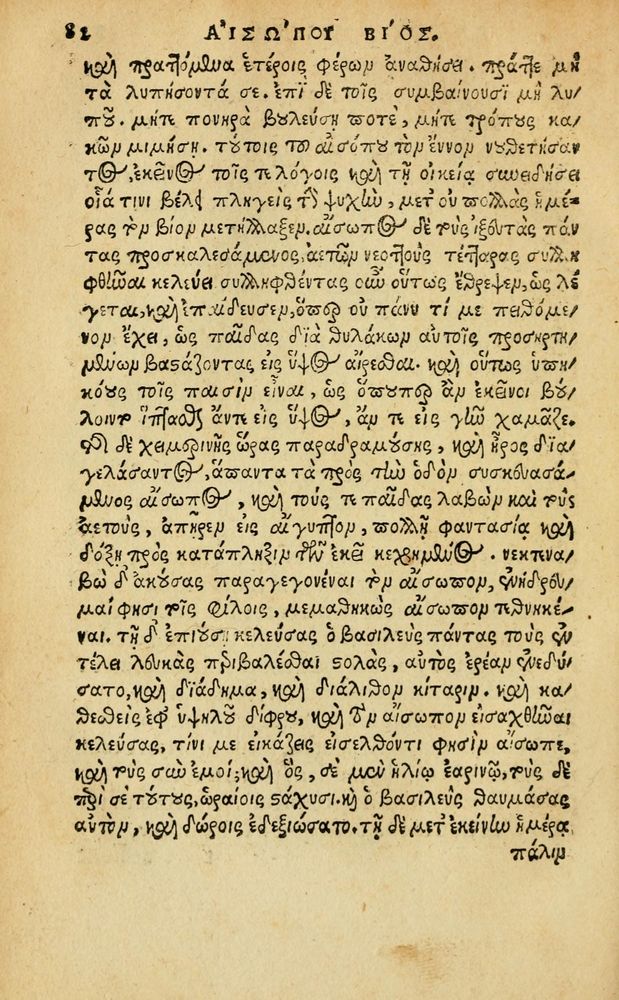 82 ΑἸΣΩΠΟΥ ΒΙΟΣ.
καὶ πραττόμενα ἑτέροις φέρων ἀναθήσει. πράττε μὴ
τὰ λυπήσοντά σε. ἐπὶ δὲ τοῖς συμβαίνουσι μὴ λυ/
ποῦ. μήτε πονηρὰ βουλεύσῃ ποτὲ, μήτε τρόπους κα/
κῶν μιμήσῃ. τούτοις τοῦ αἰσώπου τὸν ἔννον νουθετήσαν
τος, ἐκεῖνος τοῖς τε λόγοις καὶ τῇ οἰκείᾳ συνειδήσει
οἷά τινι βέλει πληγεὶς τὴν ψυχὴν, μετ' οὐ πολλὰς ἡμέ/
ρας τὸν βίον μετήλλαξεν. αἴσωπος δὲ τοὺς ἰξευτὰς πάν
τας προσκαλεσάμενος, ἀετῶν νεοττοὺς τέτταρας συλλη
φθῆναι κελεύει· συλληφθέντας οὖν οὕτως ἔθρεψεν, ὡς λέ/
γεται, καὶ ἐπαίδευσεν, ὅπερ οὐ πάνυ τι με πειθόμε/
νον ἔχει, ὡς παῖδας διὰ θυλάκων αὐτοῖς προσηρτη/
μένων βαστάζοντας εἰς ὕψος αἴρεσθαι. καὶ οὕτως ὑπη/
κόους τοῖς παισὶν εἶναι, ὡς ὅπουπερ ἂν ἐκεῖνοι βού/
λοιντο ἵπτασθαι ἄντε εἰς ὕψος, ἄν τε εἰς γῆν χαμᾶζε.
τῆς δὲ χειμερινῆς ὥρας παραδραμούσης, καὶ ἦρος δια/
γελάσαντος, ἅπαντα τὰ πρὸς τὴν ὁδὸν συσκευασά/
μενος αἴσωπος, καὶ τούς τε παῖδας λαβὼν καὶ τοὺς
ἀετοὺς, ἀπῆρεν εἰς αἴγυπτον, πολλῇ φαντασίᾳ καὶ
δόξῃ πρὸς κατάπληξιν τῶν ἐκεῖ κεχρημένος. νεκτενα/
βὼ δ' ἀκούσας παραγεγονέναι τὸν αἴσωπον, ἐνήδρευ/
μαι φησὶ τοῖς φίλοις, μεμαθηκὼς αἴσωπον τεθνηκέ/
ναι. τῇ δ' ἐπιούσῃ κελεύσας ὁ βασιλεὺς πάντας τοὺς ἐν
τέλει λευκὰς περιβαλέσθαι στολὰς, αὐτὸς ἐρέαν ἐνεδύ/
σατο, καὶ διάδημα, καὶ διάλιθον κίταριν. καὶ κα/
θεσθεὶς ἐφ' ὑψηλοῦ δίφρου, καὶ τὸν αἴσωπον εἰσαχθῆναι
κελεύσας, τίνι με εἰκάζεις εἰσελθόντι φησὶν αἴσωπε,
καὶ τοὺς σὺν ἐμοί; καὶ ὃς, σὲ μὲν ἡλίῳ ἐαρινῷ, τοὺς δὲ
περὶ σὲ τούτους, ὡραίοις στάχυσι. καὶ ὁ βασιλεὺς θαυμάσας
αὐτὸν, καὶ δώροις ἐδεξιώσατο. τῇ δὲ μετ' ἐκείνην ἡμέρᾳ
πάλιν